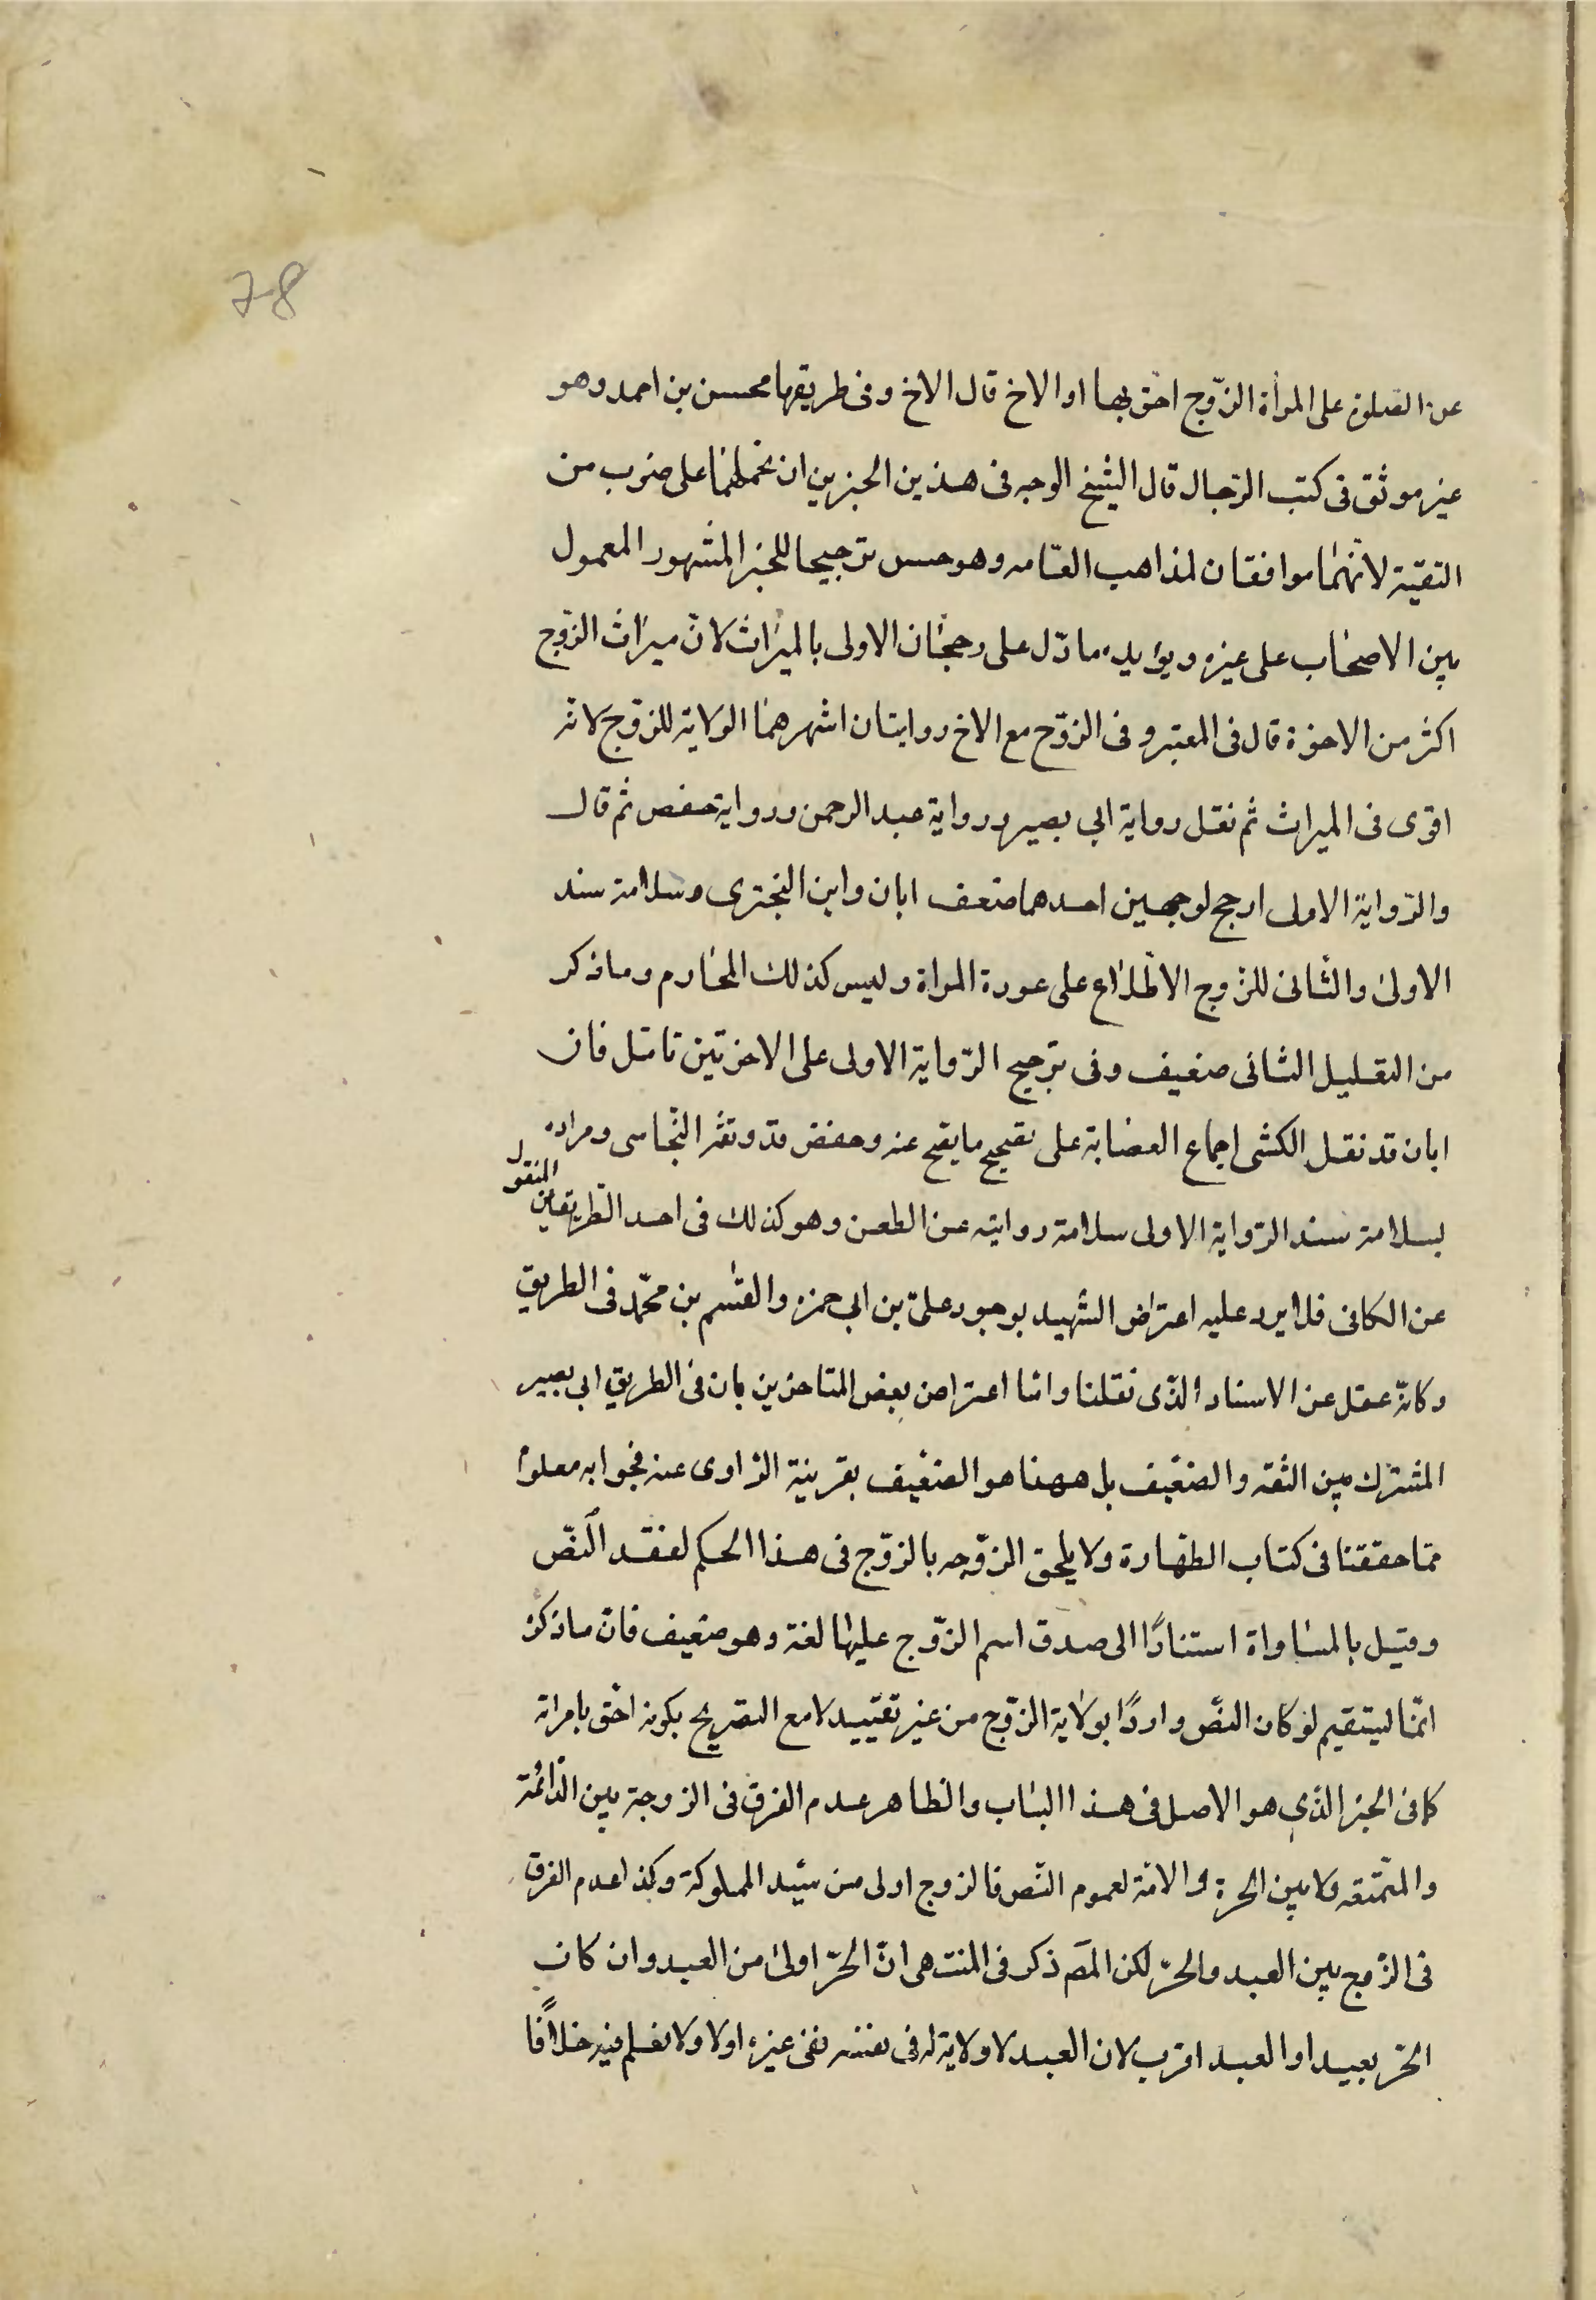 78
عن الصلوة على المرأة الزّوج احق بها او الاخ قال الاخ وفى طريقها محسن بن احمد وهو
غير موثق فى كتب الرّجال قال الشيخ الوجه فى هذين الخبرين ان نحملهما على ضرب من
التقيّة لانّهما موافقان لمذاهب العامه وهو حسن ترجيحا للخبر المشهور المعمول
بين الاصحاب على غيره ويؤيده ما دّل على رجحان الاولى بالميراث لانّ ميراث الزّوج
اكثر من الاخوة قال فى المعتبر وفى الزوّج مع الاخ روايتان اشهرهما الولاية للزوّج لانّه
اقوى فى الميراث ثم نقل رواية ابي بصير ورواية عبد الرحمن ورواية حفص ثم قال
والرّواية الاولى ارجح لوجهين احدهما ضعف ابان وابن البختري وسلامة سند
الاولى والثانى للزّوج الاطّلاع على عورة المراة وليس كذلك المحارم وما ذكر
من التعليل الثانى ضعيف وفى ترجيح الرّواية الاولى على الاخرتين تامّل فان
ابان قد نقل الكشى اجماع العصابة على تصحيح ما يصح عنه وحفص قد وثقه النّجاسى ومراده
بسلامة سند الرّواية الاولى سلامة روايته عن الطعن وهو كذلك فى احد الطريقين المنقول
عن الكافى فلا يرد عليه اعتراض الشهيد بوجود علىّ بن ابى حمزه والقٰسم بن محمّد فى الطريق
وكانّه غفل عن الاسناد الذّى نقلنا وامّا اعتراض بعض المتاخرين بان فى الطريق ابى بصير
المشترك بين الثقه والضعيف بل ههنا هو الضعيف بقرينة الرّاوى عنه فجوابه معلوم
ممّا حققنا فى كتاب الطهارة ولا يلحق الزوّجه بالزوّج فى هذا الحكم لفقد النصّ
وقيل بالمساواة استنادًا الى صدق اسم الزّوج عليها لغة وهو ضعيف فانّ ما ذكره
انّما ليتقيم لو كان النصّ واردًا بولاية الزّوج من غير تقييد لا مع التصريح بكونه احّق بامراته
كما فى الخبر الذّى هو الاصل فى هذا الباب والظاهر عدم الفرق فى الزوجة بين الدّائمة
والمتمّتعه ولا بين الحرة والامة لعموم النّص فالزوج اولى من سّيد المملوكة وكذا عدم الفرق
فى الزّوج بين العبد والحرّ لكن المصَ ذكر فى المنتهى انّ الحرّ اولى من العبد وان كان
الحّر بعيدا والعبد اقرب لان العبد لا ولاية له فى نفسه ففى غيره اولا ولا نعلم فيه خلافًا